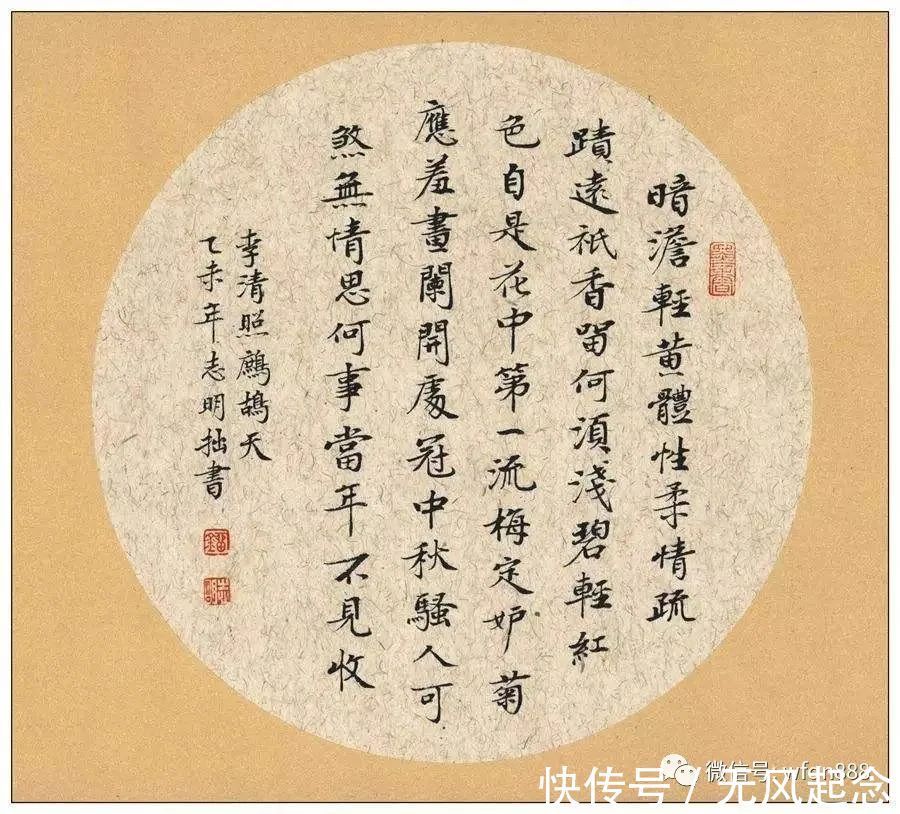 暗澹輕黃體性柔情疏
蹟遠祇香留何須淺碧輕紅
色自是花中第一流梅定妒菊
應羞畫闌開處冠中秋騷人可
煞無情思何事當年不見收
李清照鷓鴣天
乙未年志明拙書
微信号: wfgn888
快传号 / 无风起念